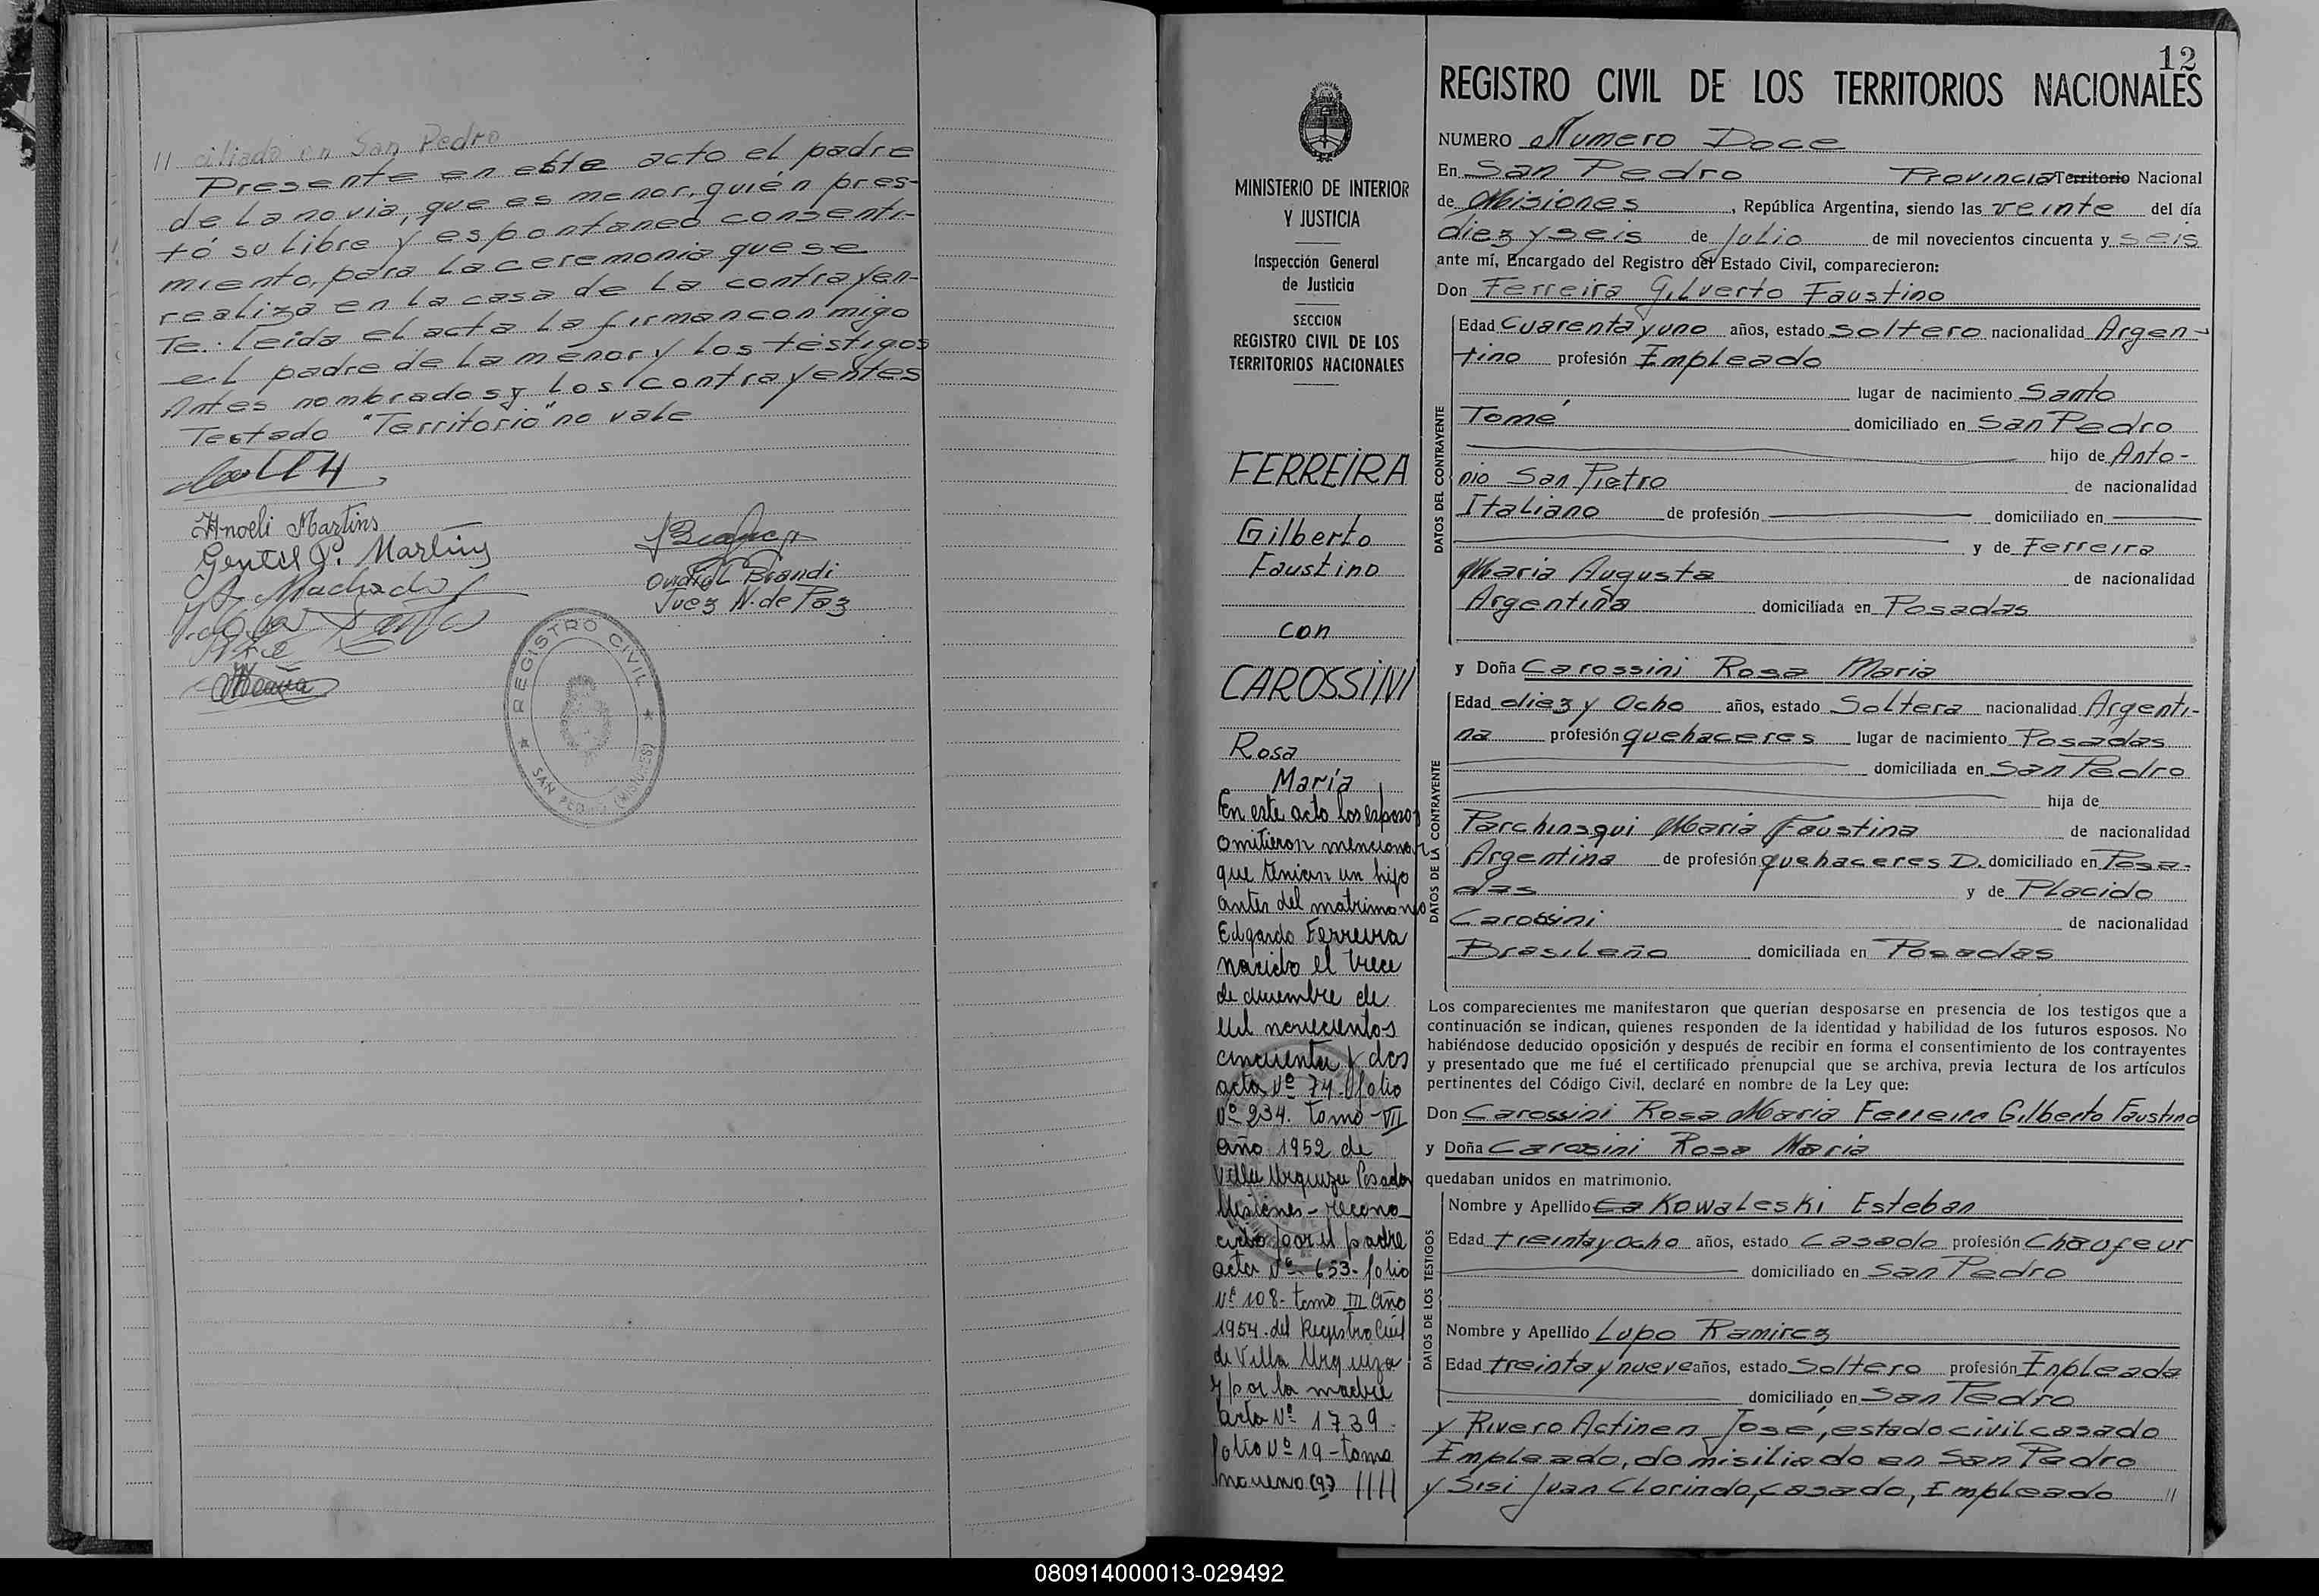 11 ciliado en San Pedro
Presente en este acto el padre
de La novia, que es menor, quién pres-
tó su libre y espontaneo consenti-
miento, para La ceremonia que se
realiza en la casa de La contrayen-
Te. Leida el acta la firman con migo
el padre de La menor y los testigos
Antes nombrados y los contrayentes
Testado "Territorio" no vale
Hnoeli Martins
Gentil P. Martins
Machado
Ovidio L Brandi
Juez N. de Paz
REGISTRO CIVIL
SAN PEDRO (MISIONES)
12
REGISTRO CIVIL DE LOS TERRITORIOS NACIONALES
MINISTERIO DE INTERIOR
Y JUSTICIA
Inspección General
de Justicia
SECCION
REGISTRO CIVIL DE LOS
TERRITORIOS NACIONALES
FERREIRA
Gilberto
Faustino
con
CAROSSINI
Rosa
María
En este acto los esposos
omitieron mencionar
que tenian un hijo
antes del matrimonio
Edgardo Ferreira
nacido el trece
de diciembre de
mil novecientos
cincuenta y dos
acta Nº 74. folio
Nº 234. tomo - VII
año 1952 de
Villa Urquiza Posadas
Misiones - recono-
cido por el padre
acta Nº 653- folio
Nº 108- tomo III año
1954. del Registro Civil
de Villa Urquiza
y por la madre
acta Nº 1739
folio Nº 19 - tomo
noveno (9º) ////
NUMERO Numero Doce
En San Pedro Provincia Territorio Nacional
de Misiones, República Argentina, siendo las veinte del día
diez y seis de Julio de mil novecientos cincuenta y seis
ante mí, Encargado del Registro del Estado Civil, comparecieron:
Don Ferreira Gilverto Faustino
DATOS DEL CONTRAYENTE
Edad Cuarenta y uno años, estado soltero nacionalidad Argen-
tino profesión Empleado
lugar de nacimiento Santo
Tomé domiciliado en San Pedro
hijo de Anto-
nio San Pietro de nacionalidad
Italiano de profesión domiciliado en
y de Ferreira
Maria Augusta de nacionalidad
Argentina domiciliada en Posadas
y Doña Carossini Rosa Maria
DATOS DE LA CONTRAYENTE
Edad diez y Ocho años, estado Soltera nacionalidad Argenti-
na profesión quehaceres lugar de nacimiento Posadas
domiciliada en San Pedro
hija de
Parchinsqui Maria Faustina de nacionalidad
Argentina de profesión quehaceres D. domiciliado en Posa-
das y de Placido
Carossini de nacionalidad
Brasileño domiciliada en Posadas
Los comparecientes me manifestaron que querían desposarse en presencia de los testigos que a
continuación se indican, quienes responden de la identidad y habilidad de los futuros esposos. No
habiéndose deducido oposición y después de recibir en forma el consentimiento de los contrayentes
y presentado que me fué el certificado prenupcial que se archiva, previa lectura de los artículos
pertinentes del Código Civil, declaré en nombre de la Ley que:
Don Carossini Rosa Maria Ferreira Gilberto Faustino
y Doña Carossini Rosa Maria
quedaban unidos en matrimonio.
DATOS DE LOS TESTIGOS
Nombre y Apellido Ca Kowaleski Esteban
Edad treinta y ocho años, estado Casado profesión Chaufeur
domiciliado en San Pedro
Nombre y Apellido Lupo Ramirez
Edad treinta y nueve años, estado Soltero profesión Enpleada
domiciliado en San Pedro
y Rivero Actinen José, estado civil casado
Empleado, domisiliado en San Pedro
y Sisi Juan Clorindo, casado, Empleado //
080914000013-029492